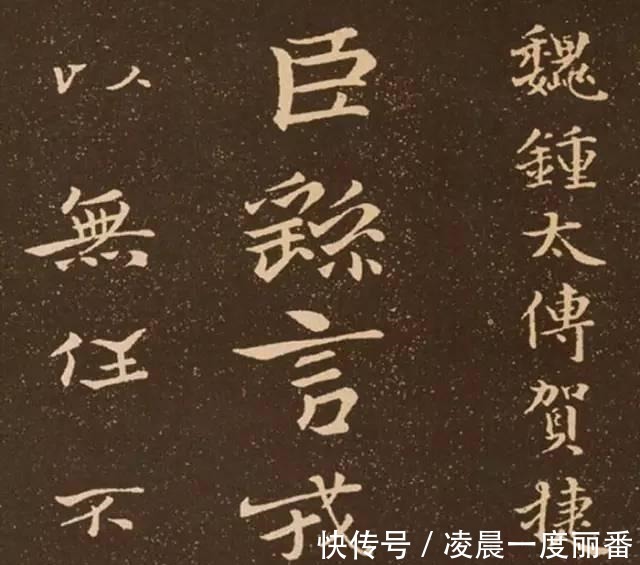 魏鍾太傅賀捷
臣繇言戎
以無任不
快传号 / 凌晨一度丽番